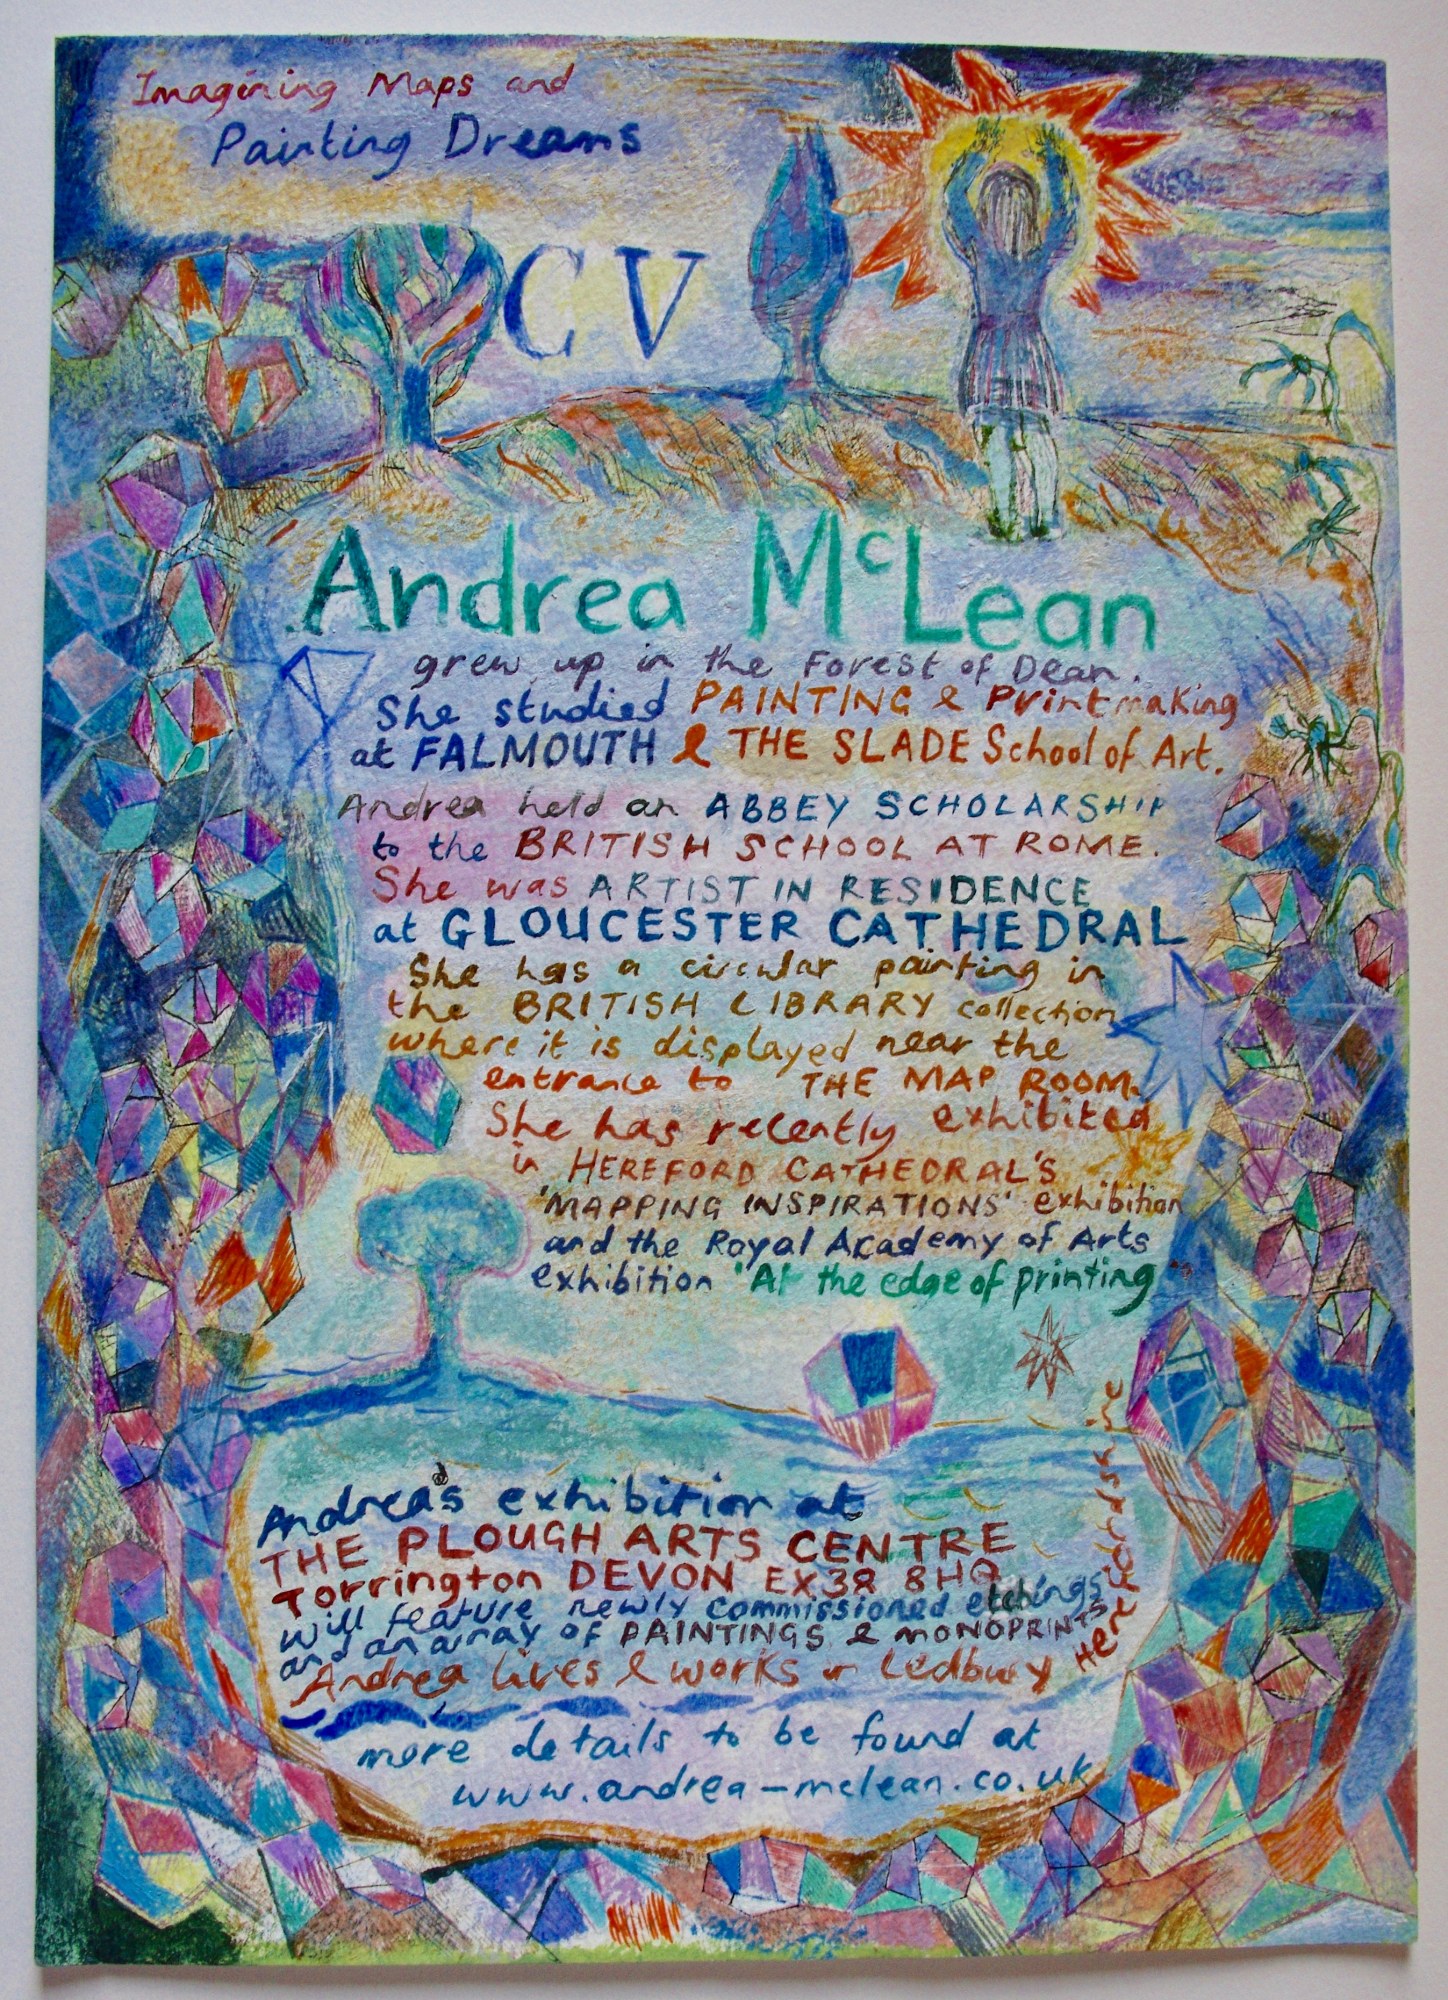 Imagining Maps and
Painting Dreams
CV
Andrea McLean
grew up in the Forest of Dean.
She studied PAINTING & Printmaking
at FALMOUTH & THE SLADE School of Art.
Andrea held an ABBEY SCHOLARSHIP
to the BRITISH SCHOOL AT ROME.
She was ARTIST IN RESIDENCE
at GLOUCESTER CATHEDRAL
She has a circular painting in
the BRITISH LIBRARY collection
where it is displayed near the
entrance to THE MAP ROOM.
She has recently exhibited
in HEREFORD CATHEDRAL'S
'MAPPING INSPIRATIONS' exhibition
and the Royal Academy of Arts
exhibition "At the edge of printing"
Andrea's exhibition at
THE PLOUGH ARTS CENTRE
Torrington DEVON EX38 8HQ
will feature newly commissioned etchings
and an array of PAINTINGS & MONOPRINTS
Andrea lives & works in Ledbury
Herefordshire
more details to be found at
www.andrea-mclean.co.uk